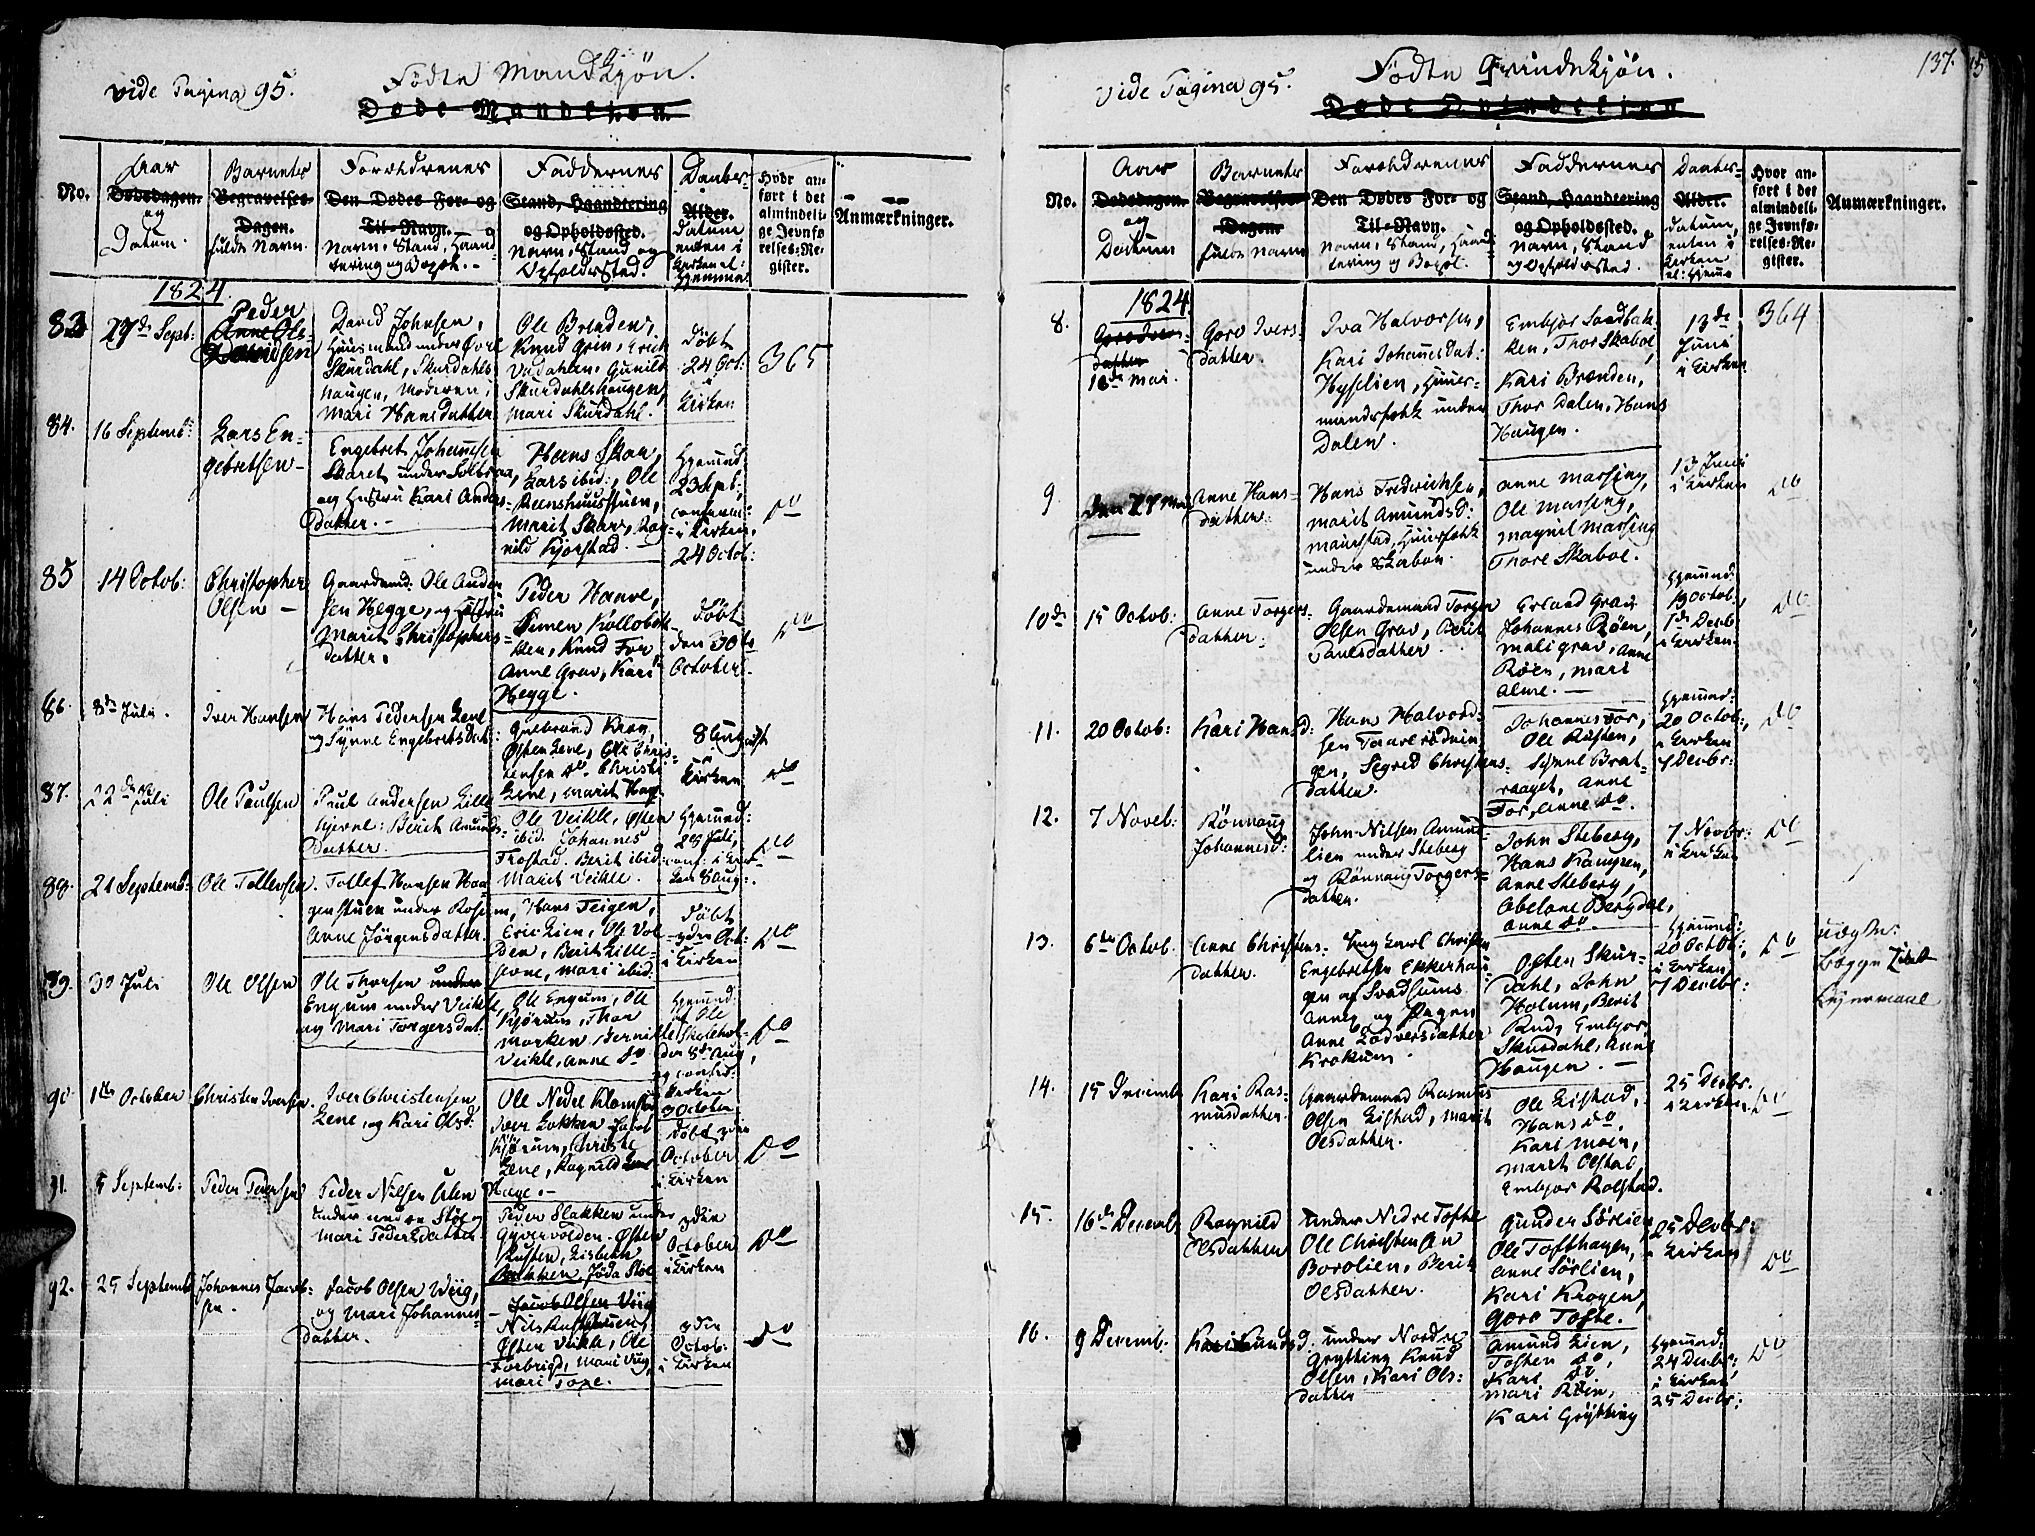 vide Pagina 95.
Födte Mandkjön.
Døde Mandkjøn.
No.
Aar
Dødsdagen.
og
Datum.
Barnets
Begravelses-
Dagen.
fulde Navn.
Forældrenes
Den Dødes For- og
Til-Navn.
Navn, Stand, Haand
tering og Bopæl.
Faddernes
Stand, Haandtering
og Opholdssted.
Navn, Stand og
Opholdssted.
Daabs-
Alder.
Datum
enten i
Kirken el:
Hjemme
Hvor an-
ført i det
almindeli-
ge Jevnfø-
relses-Re-
gister.
Anmærkninger.
1824.
83
27de Sept:
Peder
Davidsen
David Johnsen,
Huusmand under Övre
Skurdahl, Skurdahls
haugen, Moderen:
Mari Hansdatter
Ole Brenden,
Knud Grin, Erich
Vadahlen, Gunild
Skurdahlshaugen,
Mari Skurdahl.
Döbt
24 Oct:
i
Kirken
365
84.
16 Septemb:
Lars En-
gebretsen
Engebret Johannesen
Skaret under
og Hustru Kari Anders-
datter.
Hans Skar,
Lars ibid:, Ole
Steenshuusstuen,
Marit Skar, Rag-
nild Kjorstad.
Hjemmd:
23 Sept:
i Kirken,
24 Octob:
Do
85
14 Octob:
Christopher
Olsen
Gaardmd: Ole Ander
sen Hegge, og Hustru
Marit Christophers-
datter.
Peder Haave,
Simen Kollobak-
ken, Knud For
Anne Grav, Kari
Hegge.
Döbt
den 30te
October.
Do
86.
8de Juli.
Iver Hansen
Hans Pedersen Lene
og Synne Engebretsdat:
Gulbrand Krog,
Östen Lene, Ole Chris-
tensen Do. Christi
Lene, Marit Hage
8 August
i
Kirken
Do
87.
22de Juli
Ole Paulsen
Paul Andersen Lille
hjevne: Berit Amunds-
datter.
Ole Veikle, Östen
ibid. Johannes
Frostad. Berit ibid:
Marit Veikle.
Hjemmd:
29 Juli,
conf: i Kirk
den 8 Aug:
Do
88.
21 Septemb:
Ole Tollevsen.
Tollef Hansen Hau-
genstuen under Rosom,
Anne Jörgensdatter.
Hans Teigen,
Eric Lien, Ole Vol-
den, Berit Lille-
jevne, Mari ibid.
Döbt
3die Oct:
i Kirken
Do
89.
30 Juli
Ole Olsen
Ole Thorsen under
Engum under Veikle,
og Mari Torgersdat.
Ole Engum, Ole
Kjörum, Thor
Morken, Pernille
Veikle, Anne Do
Hjemmd:
af Ole
Skolehol-
der 8de Aug,
Do
90
1ste October
Christen Iversen
Iver Christensen
Lene, og Kari Olsd:
Ole Nedre Klomstad
Iver Lokken, Jacob
Kjörum, Christi
Lene, Ragnild
Hage.
Kirken
3 October
Döbt 3die
October
i Kirken
Do
91.
5 Septemb:
Peder Pedersen
Peder Nilsen Ulen
under nedre Stöe og
Mari Pedersdatter.
Peder Slakken under
Gyvervolden. Östen
Rusten, Lisbeth
Bakken, Jöda Stöe
3die
October
i Kirken
Do
92.
25 Septemb
Johannes Jacob-
sen.
Jacob Olsen Wiig,
og Mari Johannes-
datter.
Jacob Olsen Viig
Nils Rustskuen,
Östen Veikle, Ole
Forbrigd, Mari Viig,
Mari Toxe.
3die
Octob:
i Kirken
Do
vide Pagina 95.
Födte Qvindekjön.
Døde Qvindekjøn
137.
No.
Aar
Dødsdagen.
og
Datum
Barnets
Begravelses-
Dagen
fulde Navn
Forældrenes
Den Dødes For- og
Til-Navn.
Navn, Stand, Haand-
tering og Bopæl.
Faddernes
Stand, Haandtering
og Opholdssted.
Navn, Stand
og Opholdssted.
Daabs-
Alder.
Datum,
enten i
Kirken
el: Hjemme
Hvor an-
ført i det
almindeli-
ge Jevnfø-
relses-Re-
gister.
Anmærkninger.
8.
1824
Goro Ivers-
datter
18de Mai.
Goro Ivers-
datter
Iva Halvorsen,
Kari Johannesdat:
Hyslien, Huus-
mandsfolk under
Dalen.
Embjör Sandbak-
ken, Thor Skaboe,
Kari Brenden,
Thor Dalen, Hans
Haugen.
13de
Juni
i Kirken
364
9
den 27 Mai
Anne Hans-
datter.
Hans Frederichsen,
Marit Amundsd:
Maurstad, Huusfolk
under Skaboe
Anne Massing,
Ole Massing,
Magnil Massing
Thore Skaboe.
13 Juni
i Kirken
Do
10de
15 Octob:
Anne Torgers-
datter.
Gaardmand Torger
Olsen Grav, Berit
Paulsdatter.
Erland Grav
Johannes Röen,
Mali Grav, Anne
Röen, Mari
Alme.
Hjemmd:
19 Octob:,
1ste Decb
i Kirken
Do
11.
20 Octob:
Kari Hansd:
Hans Halvord-
sen Taarerödnin-
gen, Segred Christens-
datter.
Johannes For,
Ole Rusten,
Synne Brat-
raaget, Anne
For, Anne Do.
Hjemmd:
20 Octob:,
i Kirken
7 Decbr:
Do
12.
7 Novb:
Rönnaug
Johannesd:
John Nilsen Amund-
lien under Steberg
og Rönnaug Torgers-
datter.
John Steberg,
Hans Kampen,
Anne Steberg,
Abelone Bergdal,
Anne Do.
7 Novbr:
i Kirken
Do
13.
6te Octob.
Anne Christens-
datter.
Ung Karl Christen
Engebretsen Ekkerhau-
gen af Svadsums
Annex og Pigen
Anne Lodversdatter
Krokum.
Östen Skur-
dahl, John
Holum, Berit
Rud, Embjör
Skurdahl, Anne
Haugen.
Hjemmd:
20 Octob:,
i Kirken
7 Decbr:
Do
uægte.
begge 1ste
Leiermaal
14.
15 Decemb
Kari Ras-
musdatter.
Gaardmand Rasmus
Olsen Listad, Marit
Olsdatter.
Ole Listad,
Hans Do,
Kari Moen,
Marit Olstad,
Embjör Rolstad.
25 Decbr.
i Kirken
Do
15.
16de Decemb
Ragnild
Olsdatter
under Nedre Tofte
Ole Christensen
Borolien, Berit
Olsdatter.
Gunder Sörlien
Ole Tofthagen,
Anne Sörlien,
Kari Krogen,
Goro Tofte.
25 Decbr:
i Kirken
Do
16.
9 Decemb.
Kari Knudsd.
under Nordre
Grytting Knud
Olsen, Kari Ols-
datter
Amund Lien,
Tosten Do,
Kari Do
Mari Röen,
Kari Grytting
Hjemmd:
24 Decbr,
i Kirken
25 Decbr:
Do